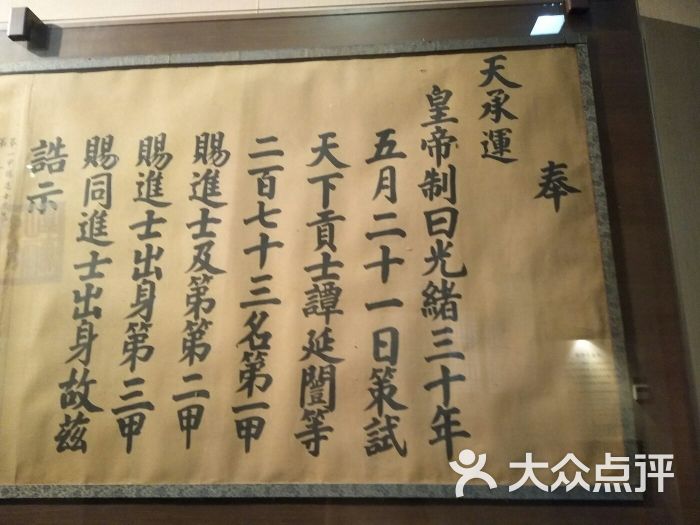 奉
天承運
皇帝制曰光緒三十年
五月二十一日策試
天下貢士譚延闓等
二百七十三名第一甲
賜進士及第第二甲
賜進士出身第三甲
賜同進士出身故茲
誥示
大众点评